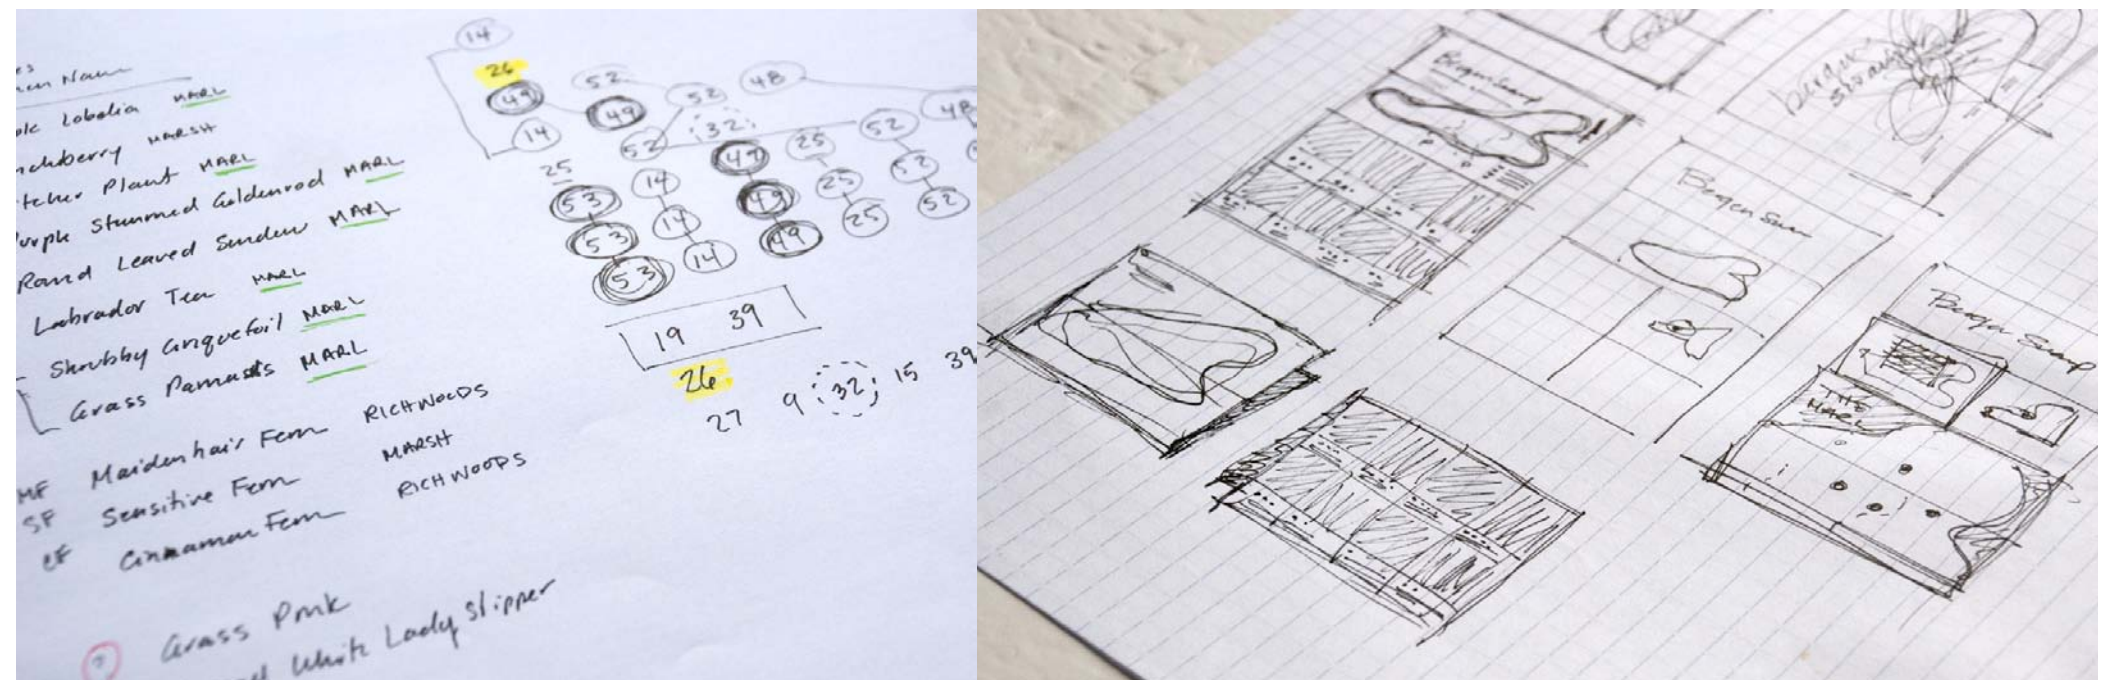 Name
Lobelia MARL
MARSH
Plant MARL
Stemmed Goldenrod MARL
Round Leaved Sundew MARL
Labrador Tea MARL
Shrubby Cinquefoil MARL
Grass Parnassus MARL
MF Maidenhair Fern RICHWOODS
SF Sensitive Fern MARSH
CF Cinnamon Fern RICHWOODS
? Grass Pink
White Lady Slipper
14
26
49
14
52
49
52
52
32
48
48
25
53
53
53
14
14
14
49
49
49
25
25
25
52
52
52
19 39
26
27 9 32 15 39
Bergen Swamp
bergen
swamp
Bergen Swamp
Bergen Swamp
THE